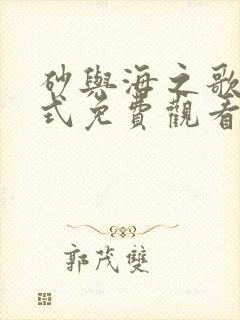 砂與海之歌
式免費觀看
郭茂雙